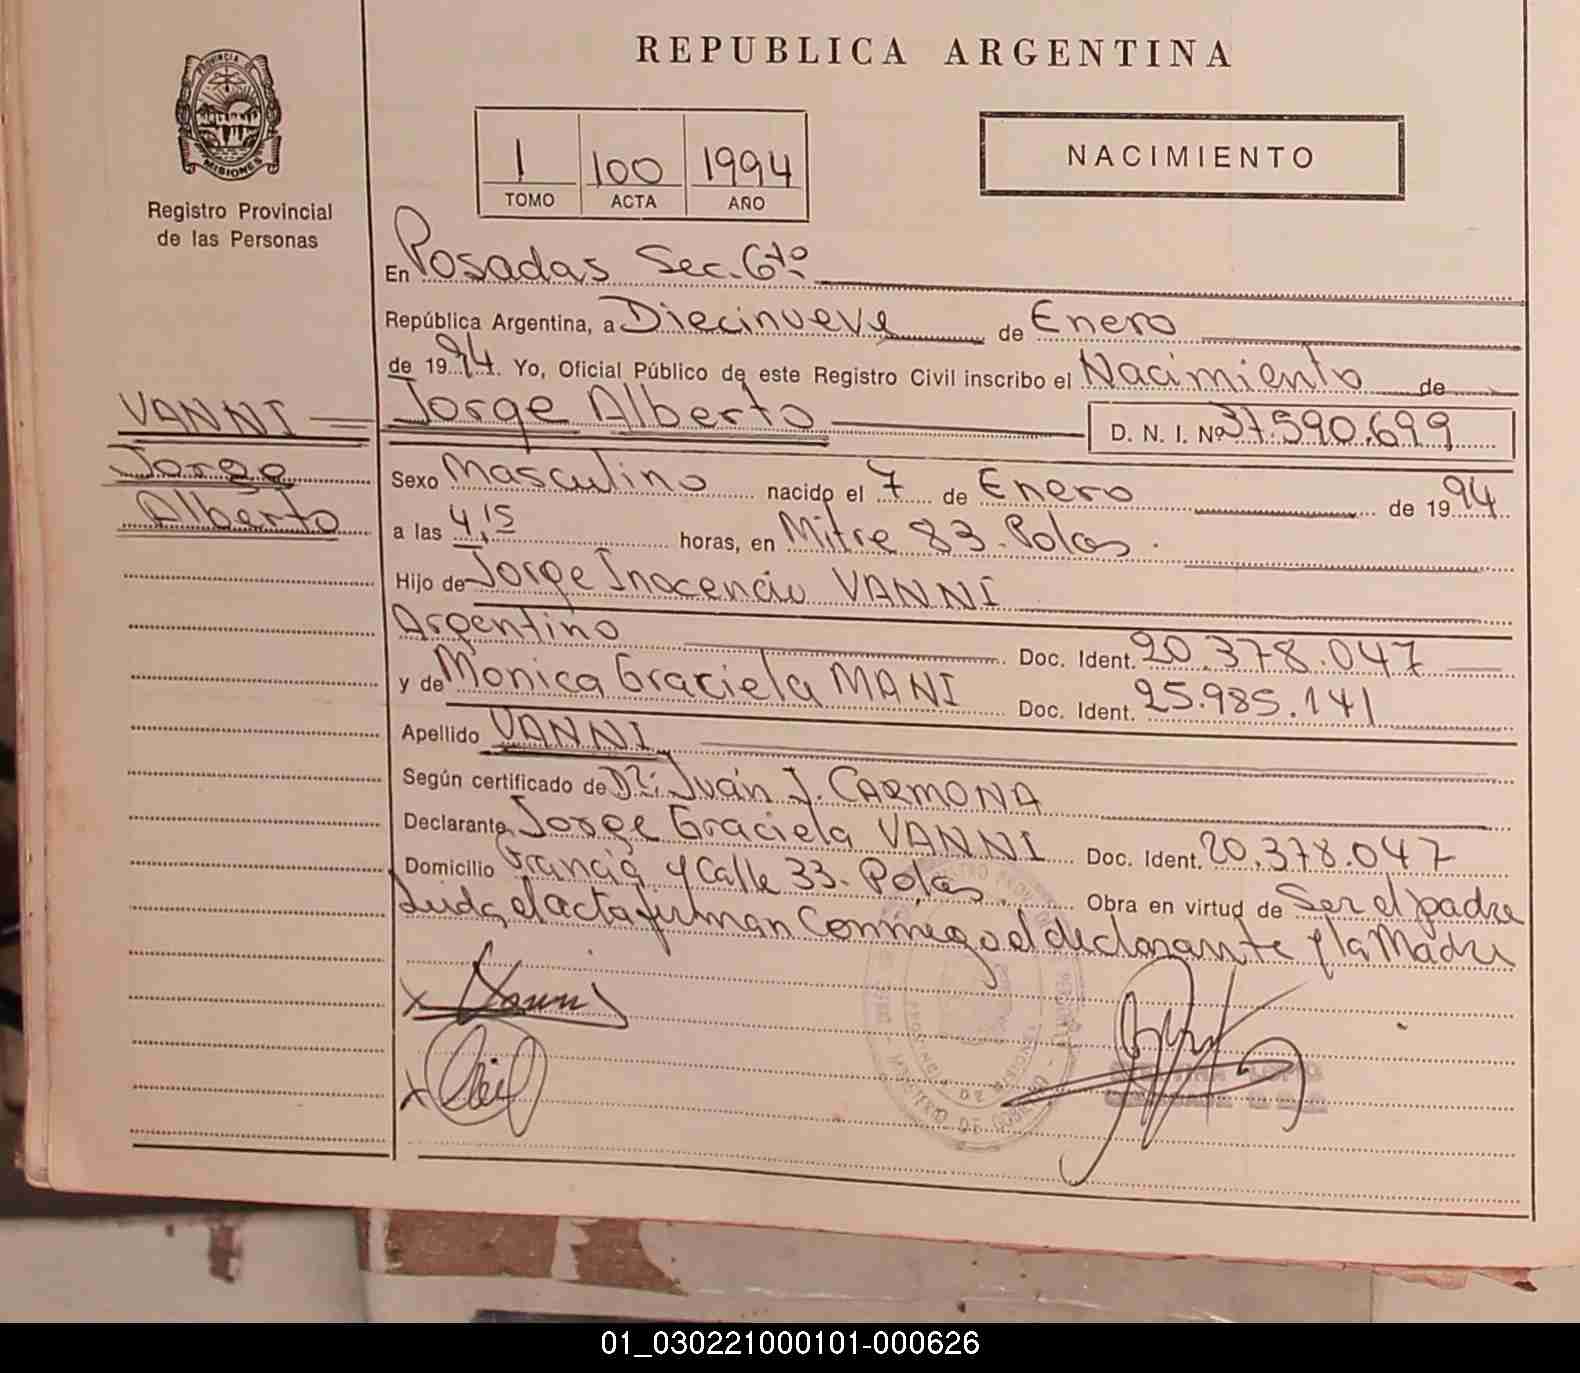 REPUBLICA ARGENTINA
PROVINCIA DE MISIONES
Registro Provincial
de las Personas
1 100 1994
TOMO ACTA AÑO
NACIMIENTO
En Posadas Sec. 6to
República Argentina, a Diecinueve de Enero
de 1994. Yo, Oficial Público de este Registro Civil inscribo el Nacimiento de
VANNI Jorge Alberto D. N. I. Nº 37.590.699
Jorge
Alberto
Sexo Masculino nacido el 7 de Enero de 1994
a las 4,15 horas, en Mitre 83. Pdas.
Hijo de Jorge Inocencio VANNI
Argentino Doc. Ident. 20.378.047
y de Monica Graciela MANI Doc. Ident. 25.985.141
Apellido VANNI
Según certificado de Dr: Juan J. CARMONA
Declarante Jorge Graciela VANNI Doc. Ident. 20.378.047
Domicilio Francia y Calle 33. Pdas. Obra en virtud de Ser el padre
Leida el acta firman Conmigo el declarante y la Madre
01_030221000101-000626